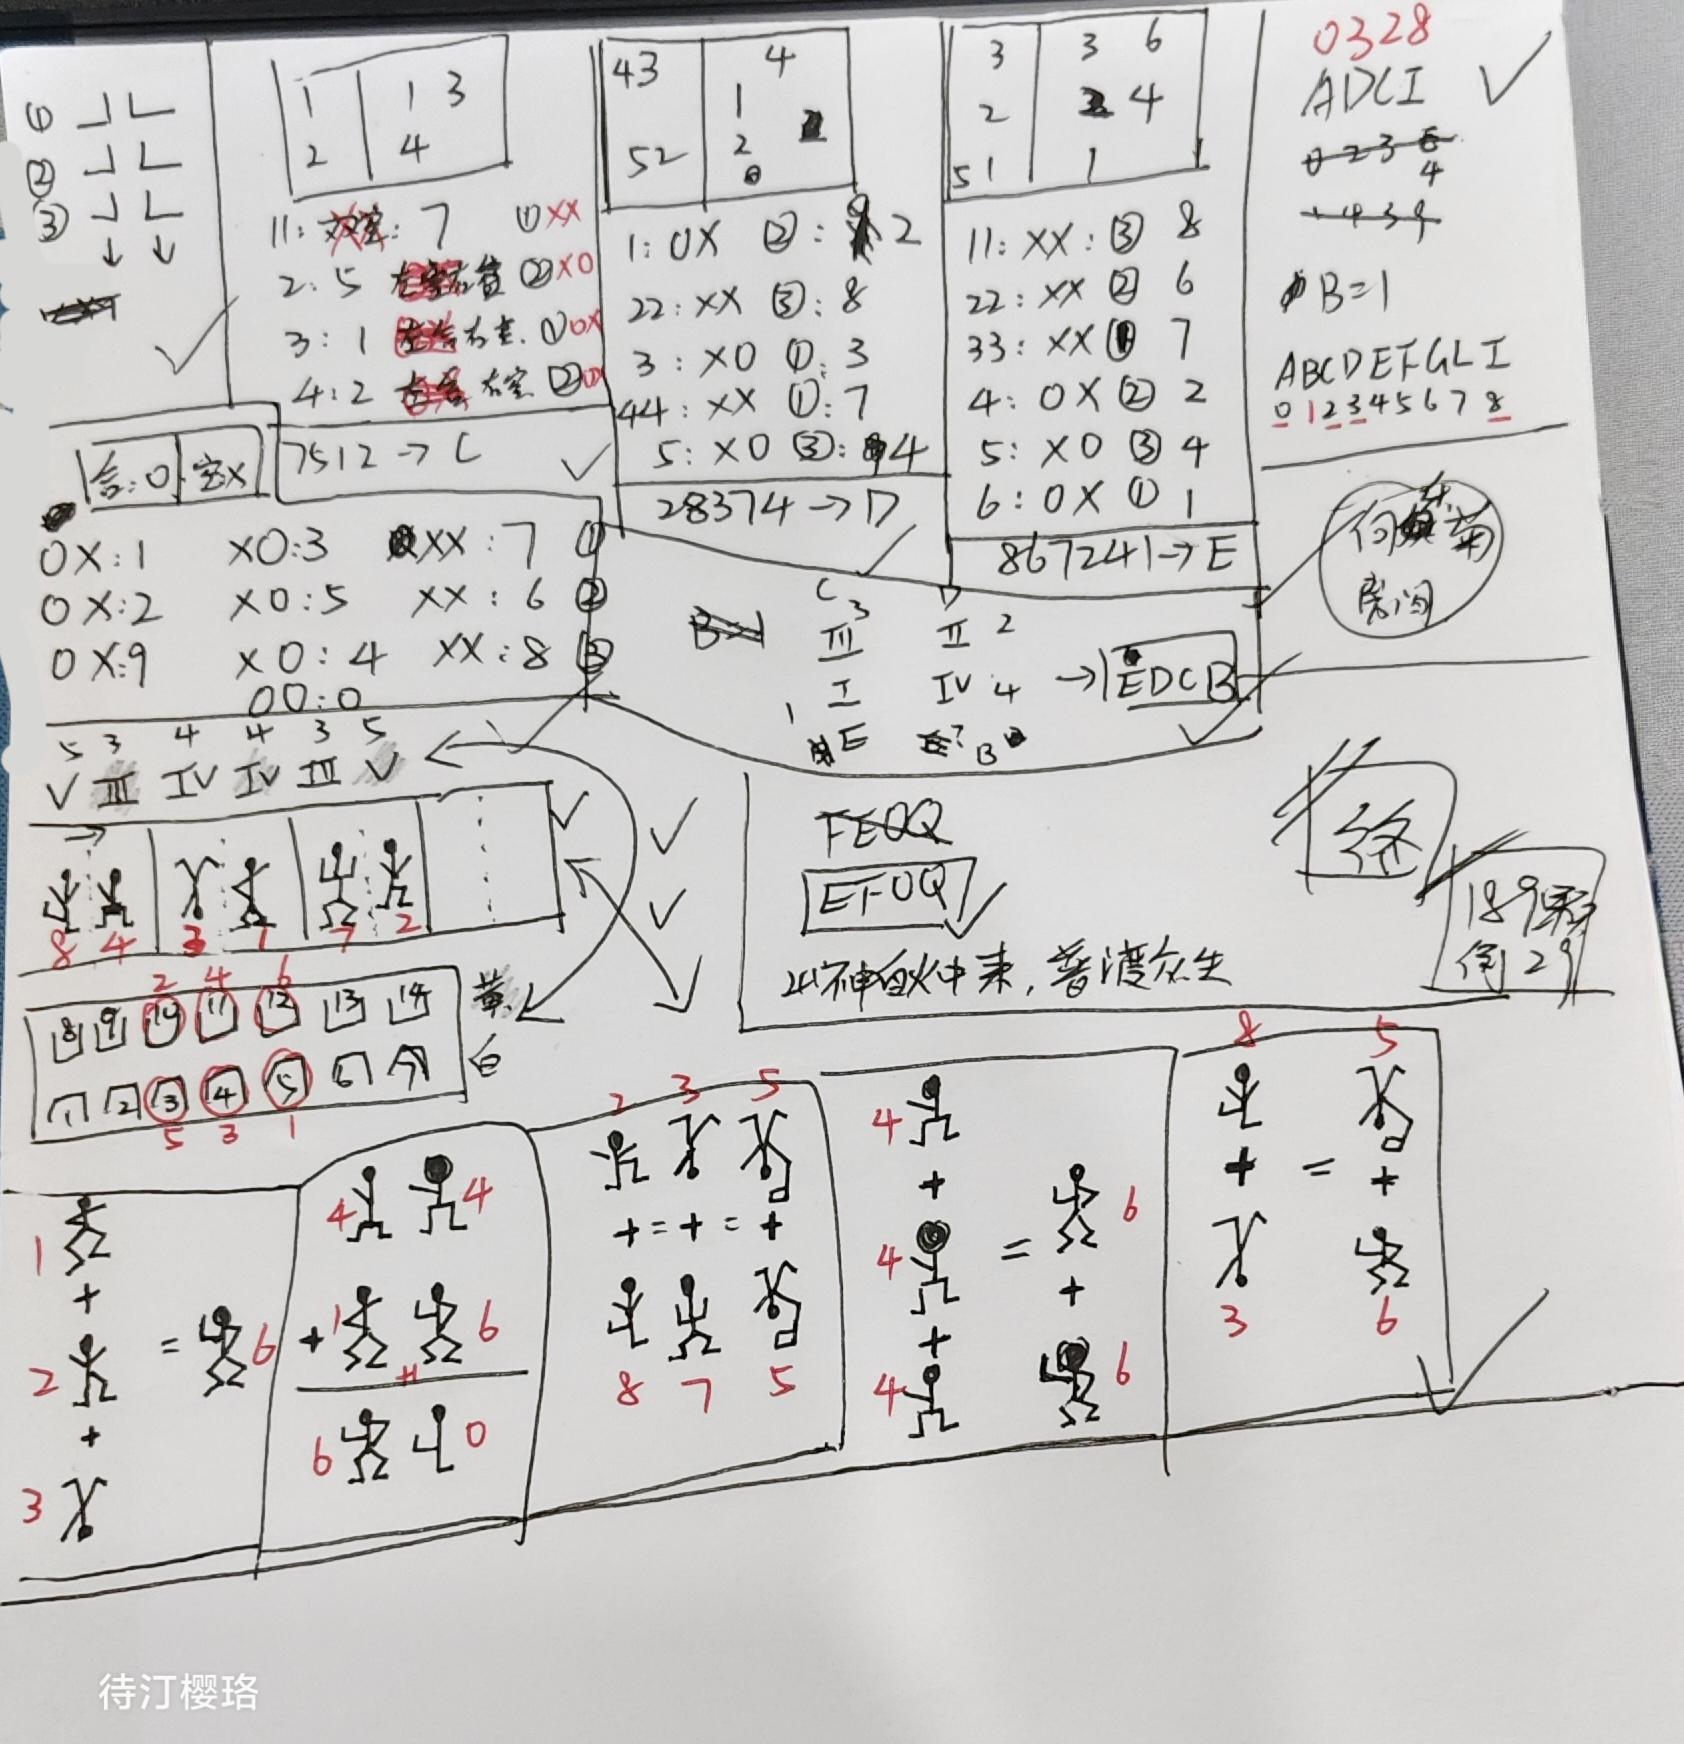 ①
②
③
1 | 1 3
2 | 4
11: 7 ①XX
2: 5 ②XO
3: 1 ①OX
4: 2 ②
7512→C
43 | 4
1
52 | 2
1: OX ②: 2
22: XX ③: 8
3: XO ①: 3
44: XX ①: 7
5: XO ③: 4
28374→D
3 | 3 6
2 | 4
51 | 1
11: XX: ③ 8
22: XX ② 6
33: XX ① 7
4: OX ② 2
5: XO ③ 4
6: OX ① 1
867241→E
0328
ADCI
4
B=1
ABCDEFGLI
012345678
房间
含:O 空X
OX:1 XO:3 XX:7 ①
OX:2 XO:5 XX:6 ②
OX:9 XO:4 XX:8 ③
OO:0
C D
III 3 II 2
1 I IV 4 →EDCB
E B
5 3 4 4 3 5
V III IV IV III V
8 4 3 1 7 2
FEOQ
EFOQ
神自火中来,普渡众生
终
189
倒29
2 4 6
8 9 10 11 12 13 14 黄
1 2 3 4 5 6 7 白
5 3 1
1
+
2 = 6
+
3
4 4
+ 1 6
+1
6 0
2 3 5
+ = + = +
8 7 5
4
+
4 = 6
+ +
4 6
8 5
+ = +
3 6
待汀樱珞